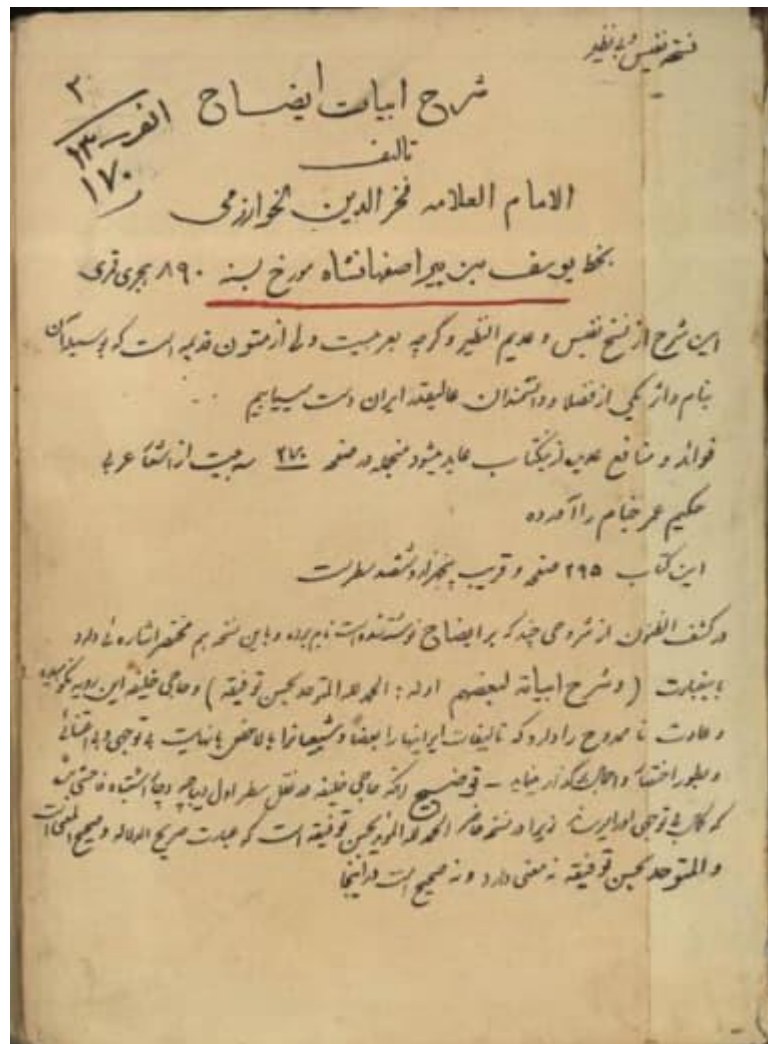 نسخه نفیس و بی نظیر
شرح ابیات ایضاح
تالیف
الامام العلامه فخر الدین الخوارزمی
بخط یوسف بن پیر اصفهانشاه مورخ بسنه ۸۹۰ هجری قمری
۳
۱۳
۱۷۰
این شرح از نسخ نفیس و عدیم النظیر و گرچه بعربیست ولی از متون قدیمه است که بوسیله آن
بنام و اثر یکی از فضلا و دانشمندان عالیقدر ایران دست مییابیم
فوائد و منافع علمی از این کتاب عاید میشود منجمله در صفحه ۲۷۰ سه بیت از اشعار عربی
حکیم عمر خیام را آورده
این کتاب ۲۹۵ صفحه و قریب پنجهزار و ششصد سطر است
در کشف الظنون از شروحی چند که بر ایضاح نوشته شده است نام برده و باین نسخه هم مختصر اشاره ئی دارد
باینعبارت (وشرح ابیاته لبعضهم اوله: الحمد لله المتوحد بحسن توفیقه) و حاجی خلیفه این رویه نکوهیده
و عادت نا ممدوح را دارد که تالیفات ایرانیها را بعضاً و شیعیانرا بالاخص با نهایت بی توجهی و بی اعتنائی
و بطور اختصار و اجمال برگذار مینماید - توضیح آنکه حاجی خلیفه در نقل سطر اول دیباچه دچار اشتباه فاحشی شده
که کمال بی توجهی او را میرساند زیرا در نسخه حاضر الحمد لله المؤید بحسن توفیقه است که عبارت صریح الدلاله و صحیح المعنی است
و المتوحد بحسن توفیقه نه معنی دارد و نه صحیح است در اینجا